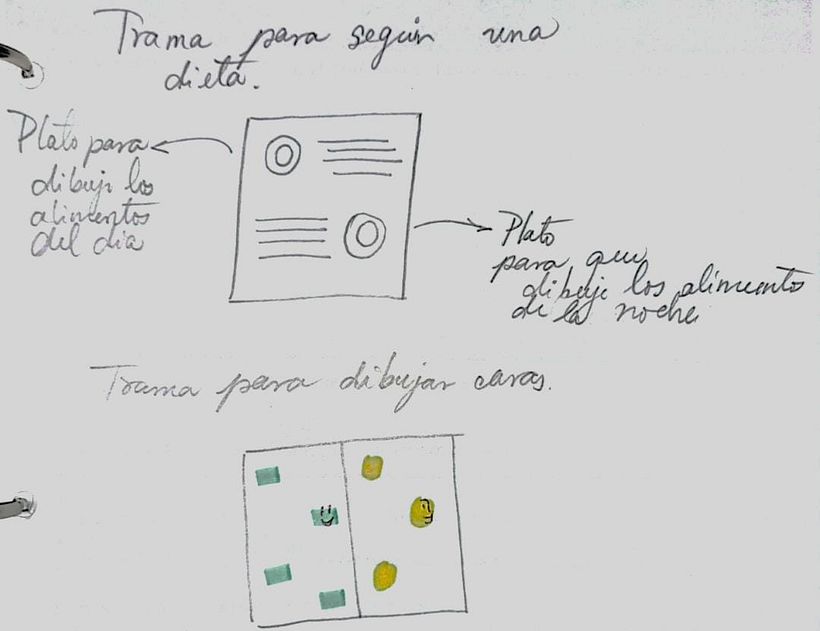 Trama para seguir una
dieta.
Plato para
dibuji los
alimentos
del dia
Plato
para que
dibuje los alimento
de la noche
Trama para dibujar caras.